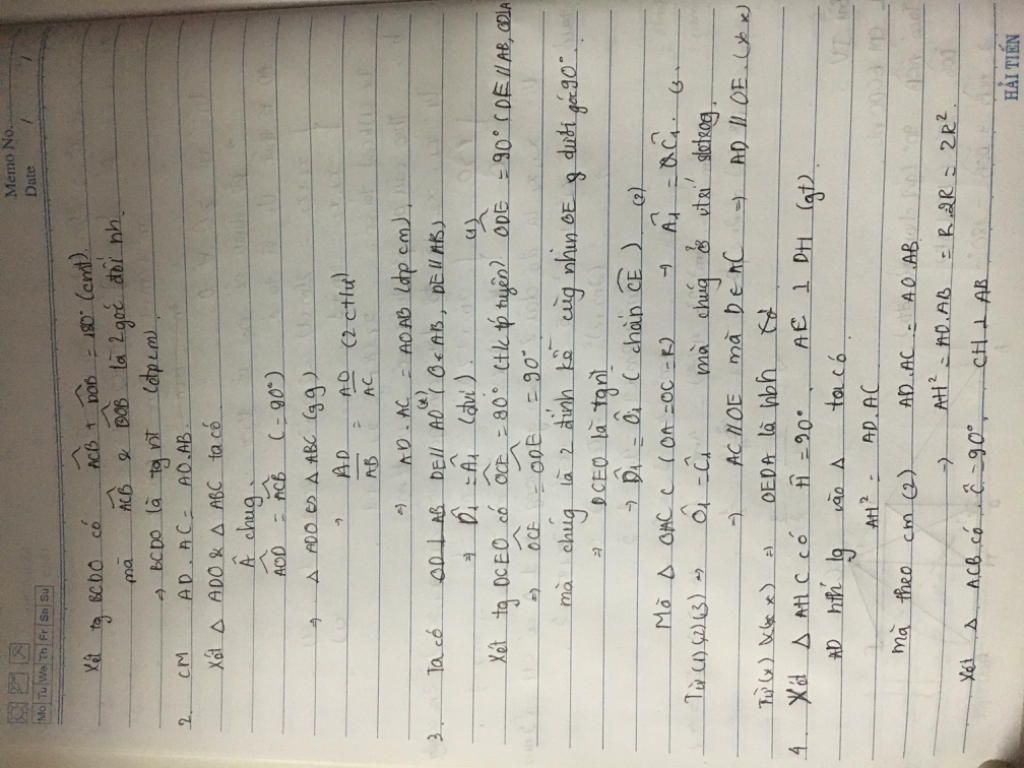 Memo No.
Date / /
Mo Tu We Th Fr Sa Su
Xét tg BCDO có ACB + DOB = 180° (cmt).
mà ACB & DOB là 2 góc đối nh
→ BCDO là tg nt (đpcm)
2. CM AD . AC = AO . AB.
Xét Δ ADO & Δ ABC ta có
Â chug
AOD = ACB (= 90°)
→ Δ ADO ∽ Δ ABC (gg)
→ AD/AB = AO/AC (2 ctứ)
→ AD . AC = AO AB (đpcm).
3. Ta có OD ⊥ AB DE // AO (O ∈ AB, DE // AB) (*)
⇒ D̂₁ = Â₁ (đvị). (1)
Xét tg DCEO có OCE = 90° (t/c tiếp tuyến) ODE = 90° (DE // AB,
⇒ OCE = ODE = 90°
mà chúg là 2 đỉnh kề cùg nhìn OE g dưới góc 90°
⇒ DCEO là tg nt
→ D̂₁ = Ô₁ (chắn CE) (2)
Mà Δ OAC c (OA = OC = R) → Â₁ = Ĉ₁. (3)
Từ (1) (2) (3) ⇒ Ô₁ = Ĉ₁ mà chúg ở vtrí sletrog
⇒ AC // OE mà D ∈ AC ⇒ AD // OE. (**)
Từ (*) & (**) ⇒ OEDA là hbh
4. Xét Δ AHC có Ĥ = 90°, AE ⊥ DH (gt)
AD hthứ lg vào Δ ta có
AH² = AD . AC
mà theo cm (2) AD . AC = AO . AB
→ AH² = AO . AB = R . 2R = 2R²
Xét Δ ACB có Ĉ = 90°, CH ⊥ AB
HẢI TIẾN